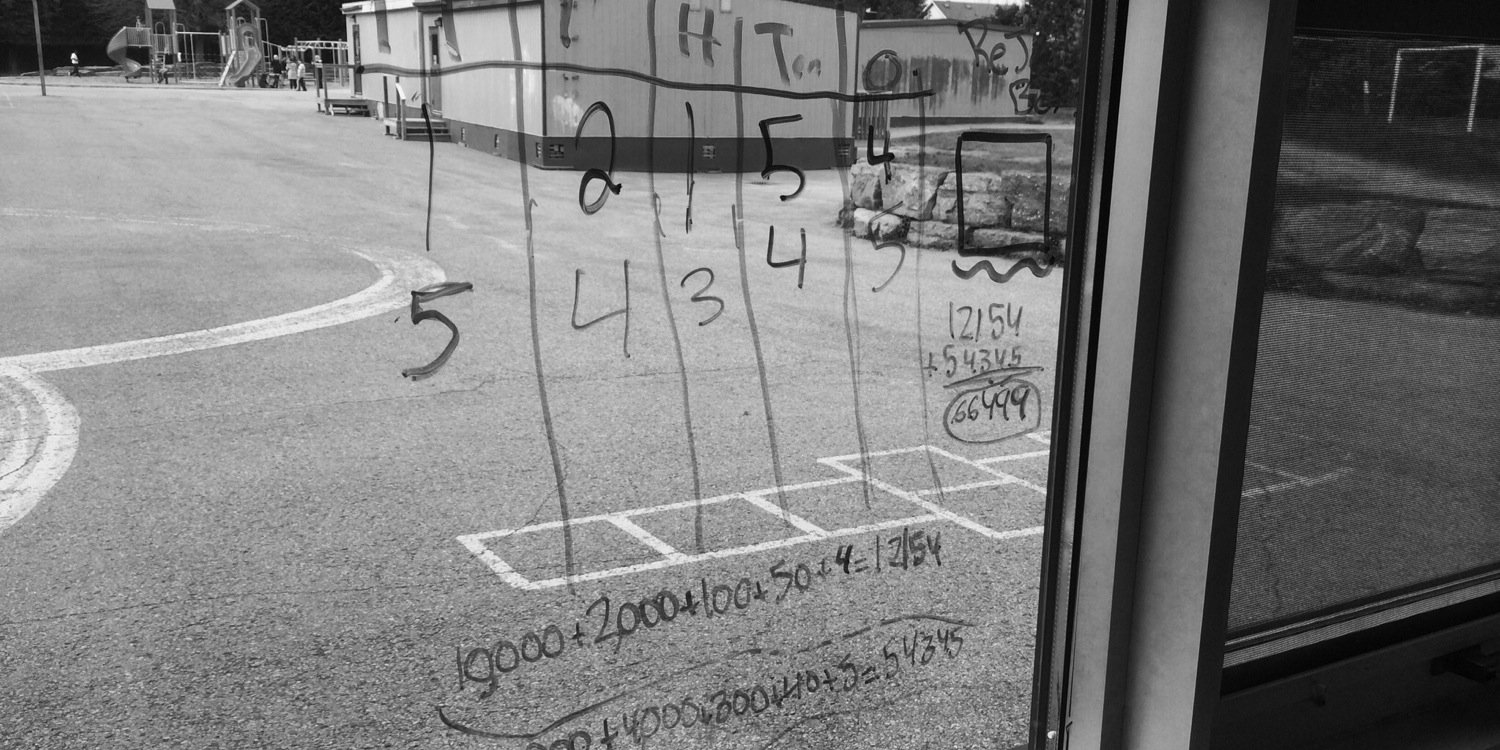 H Ten O
1 2 1 5 4
5 4 3 4 5
12154
+54345
66499
10,000+2,000+100+50+4=12154
+4000+300+40+5=54345